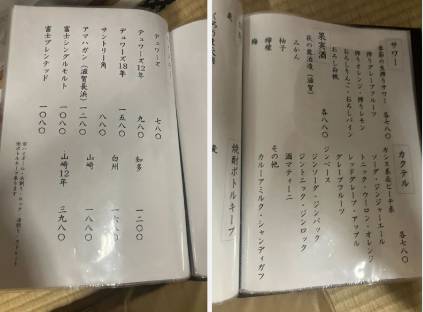 デュワーズ 七八〇
デュワーズ12年 九八〇
デュワーズ18年 一五八〇
サントリー角 八八〇
アマハガン（滋賀長浜） 一二八〇
富士シングルモルト 一〇八〇
富士ブレンテッド 一〇八〇
知多 一二〇〇
白州 一六八〇
山崎 一八八〇
山崎12年 三九八〇
サワー 各七八〇
季節の生搾りサワー
搾りグレープフルーツ
搾りオレンジ・搾りレモン
おろしりんご・おろしパイン
おろし白桃
果実酒 各八八〇
萩の露酒造（滋賀）
みかん
柚子
檸檬
梅
カクテル 各七八〇
カシス系 ピーチ系
ソーダ・ジンジャーエール
トニック・ウーロン・オレンジ
レッドグレープ・アップル
グレープフルーツ
ジンベース
ジンソーダ・ジンバック
ジントニック・ジンロック
酒マティーニ
その他
カルーアミルク・シャンディガフ
焼酎ボトルキープ